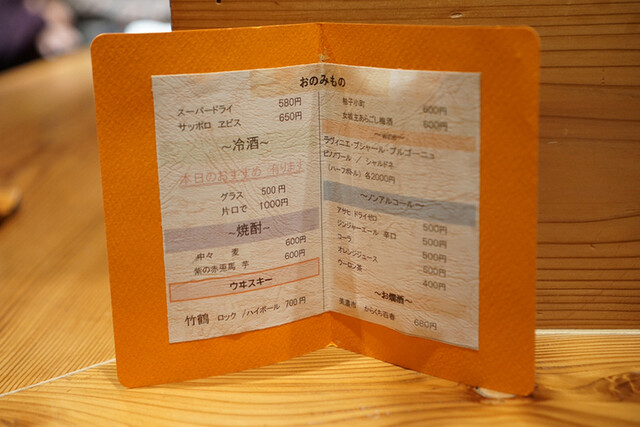 おのみもの
スーパードライ 580円
サッポロ ヱビス 650円
～冷酒～
本日のおすすめ 有ります
グラス 500円
片口で 1000円
～焼酎～
中々 麦 600円
紫の赤兎馬 芋 600円
ウヰスキー
竹鶴 ロック /ハイボール 700円
600円
女城主あらごし梅酒 600円
ラヴィニエ・ブシャール・ブルゴーニュ
ピノノワール / シャルドネ
(ハーフボトル) 各2000円
～ノンアルコール～
アサヒ ドライゼロ 500円
ジンジャーエール 辛口 500円
コーラ 500円
オレンジジュース 500円
ウーロン茶 400円
～お燗酒～
からくち百春 680円